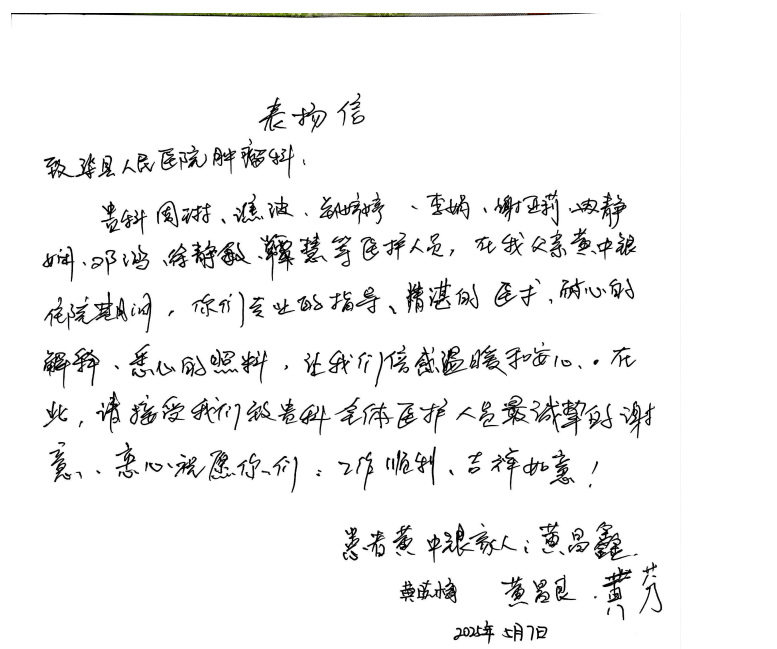 表扬信
致渠县人民医院肿瘤科:
贵科周琳、谯波、郑婷婷、李娟、谢亚莉、静
娴、邓鸿、徐静敏、慧等医护人员,在我父亲黄中银
住院其间,你们专业的指导、精湛的医术、耐心的
解释、悉心的照料,让我们倍感温暖和安心。在
此,请接受我们致贵科全体医护人员最诚挚的谢
意、衷心祝愿你们:工作顺利、吉祥如意!
患者黄中银家人:黄昌鑫
黄 黄昌良 黄芳
2025年5月7日